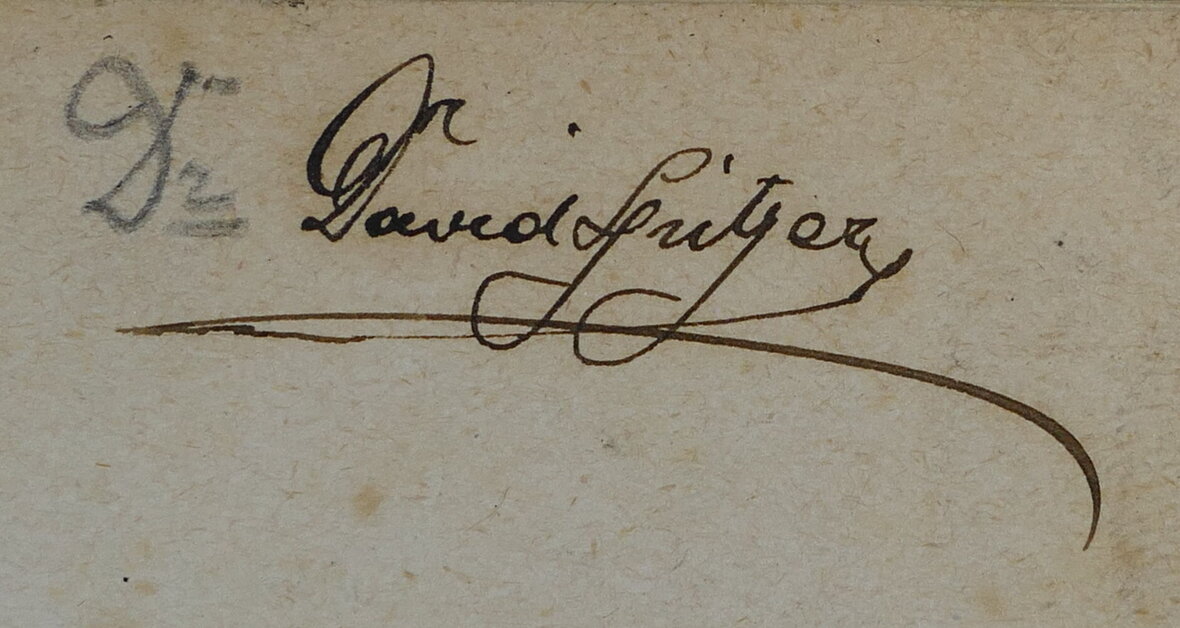 Dr
Dr David Spitzer